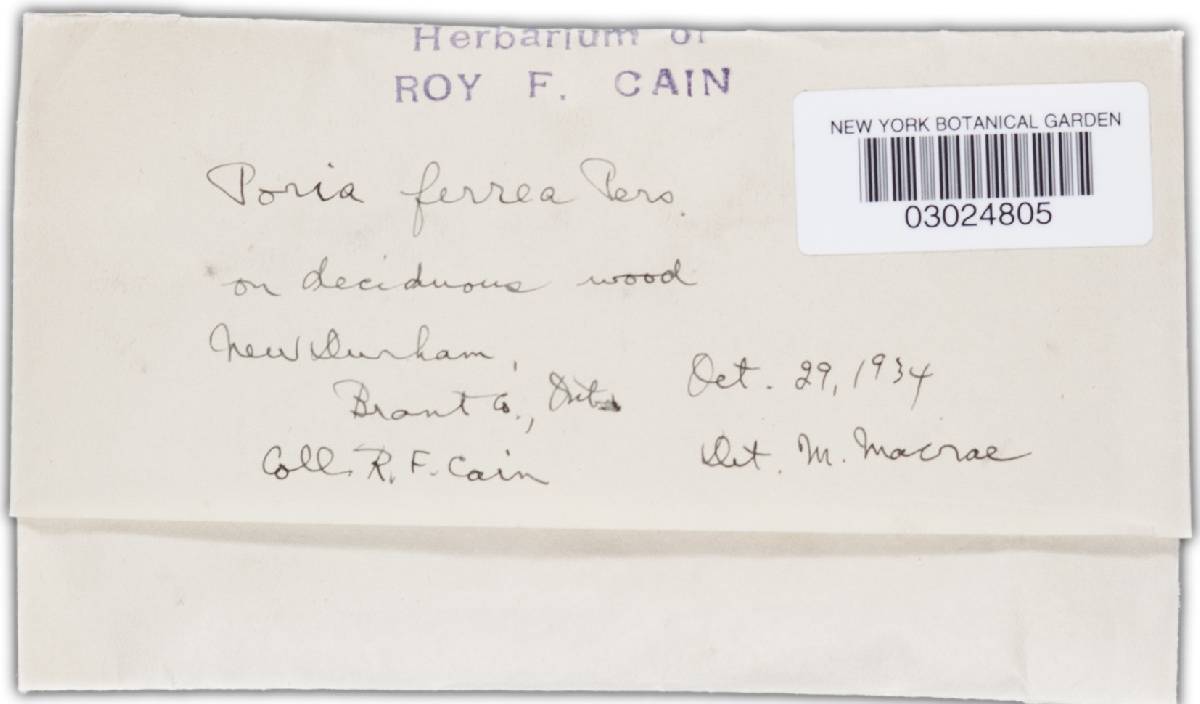 Herbarium of
ROY F. CAIN
NEW YORK BOTANICAL GARDEN
03024805
Poria ferrea Pers.
on deciduous wood
New Durham,
Brant Co., Ont.
Oct. 29, 1934
Coll. R. F. Cain
Det. M. Macrae